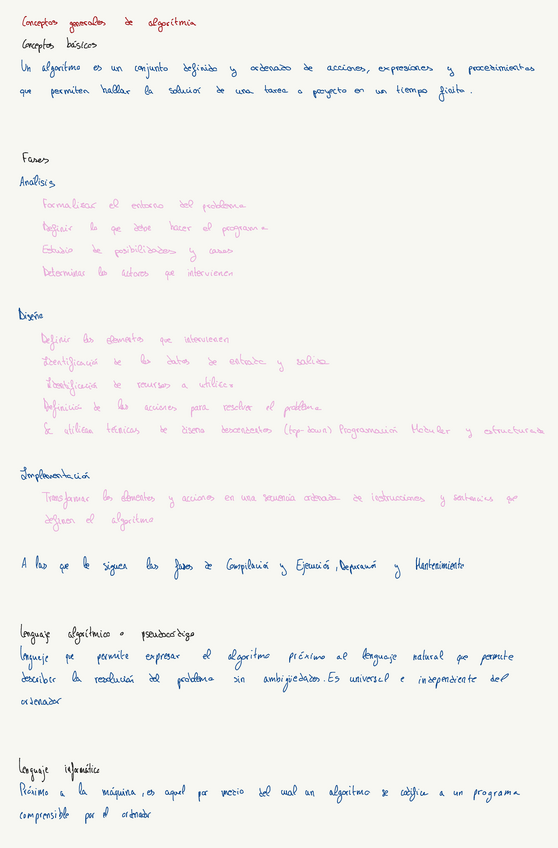 Conceptos generales de algoritmia
Conceptos básicos
Un algoritmo es un conjunto definido y ordenado de acciones, expresiones y procedimientos
que permiten hallar la solución de una tarea o proyecto en un tiempo finito.
Fases
Analísis
Formalizar el entorno del problema
Definir lo que debe hacer el programa
Estudio de posibilidades y casos
Determinar los actores que intervienen
Diseño
Definir los elementos que intervienen
Identificació de los datos de entrada y salida
Identificació de recursos a utilizar
Definición de las acciones para resolver el problema
Se utilizan técnicas de diseño descendentes (top-down) Programación Modular y estructurada
Implementación
Transformar los elementos y acciones en una secuencia ordenada de instrucciones y sentencias que
definen el algoritmo
A las que le siguen las fases de Compilación y Ejecución, Depuración y Mantenimiento
Lenguaje algorítmico o pseudocódigo
Lenguaje que permite expresar el algoritmo próximo al lenguaje natural que permite
describir la resolución del problema sin ambigüedades. Es universal e independiente del
ordenador
Lenguaje informático
Próximo a la máquina, es aquel por medio del cual un algoritmo se codifica a un programa
comprensible por el ordenador